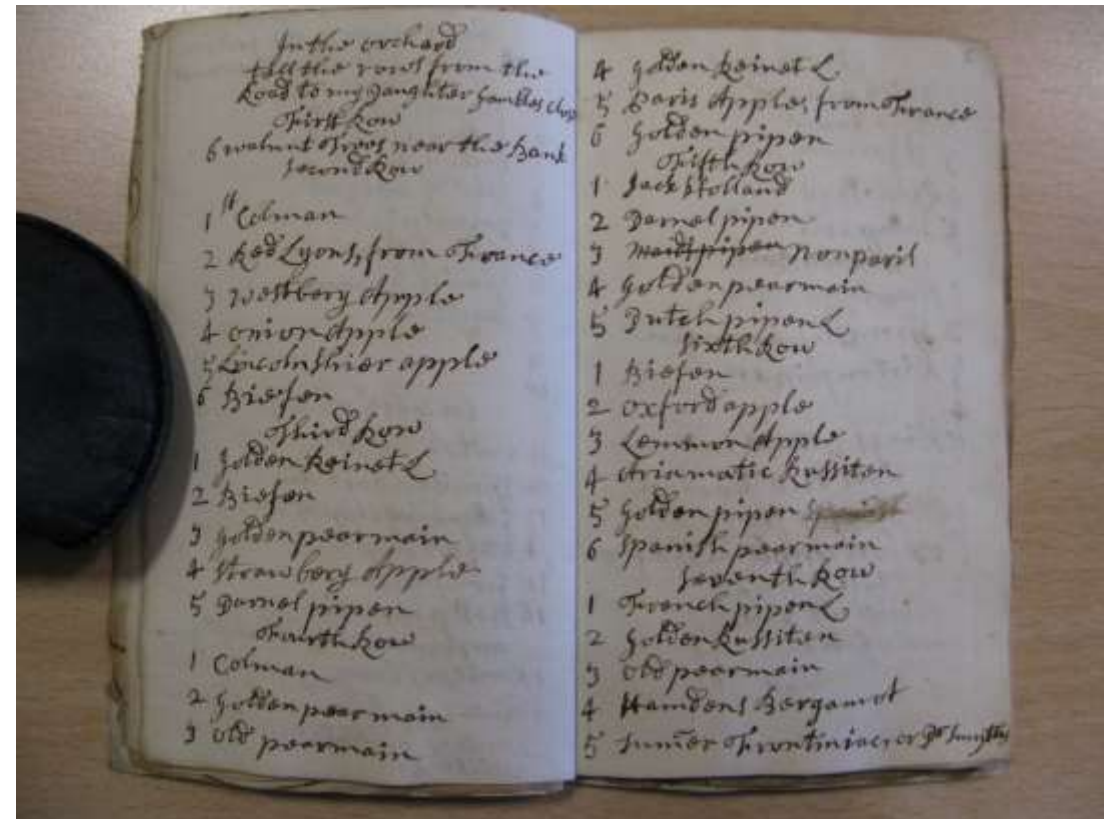 In the orchard
tell the rows from the
Road to my Daughter Close
First Row
6 walnut Trees near the Bank
Second Row
1st Colman
2 Red Lyons, from France
3 Westbery Apple
4 onion Apple
5 Lincolnshier apple
6 Biefen
Third Row
1 Golden Reinet L
2 Biefen
3 golden pearmain
4 Strawbery Apple
5 Darnel pipen
Fourth Row
1 Colman
2 golden pearmain
3 old pearmain
4 golden Reinet L
5 Paris Apple, from France
6 Golden pipen
Fifth Row
1 Jack Holland
2 Darnel pipen
3 pipen Nonparil
4 golden pearmain
5 Dutch pipen L
Sixth Row
1 Biefen
2 Oxford apple
3 Lemmon Apple
4 Ariamatic Russiten
5 Golden pipen
6 Spanish pearmain
Seventh Row
1 French pipen L
2 Golden Russiten
3 old pearmain
4 Hamdens Bergamot
5 Sumer Frontiniac, or Dr